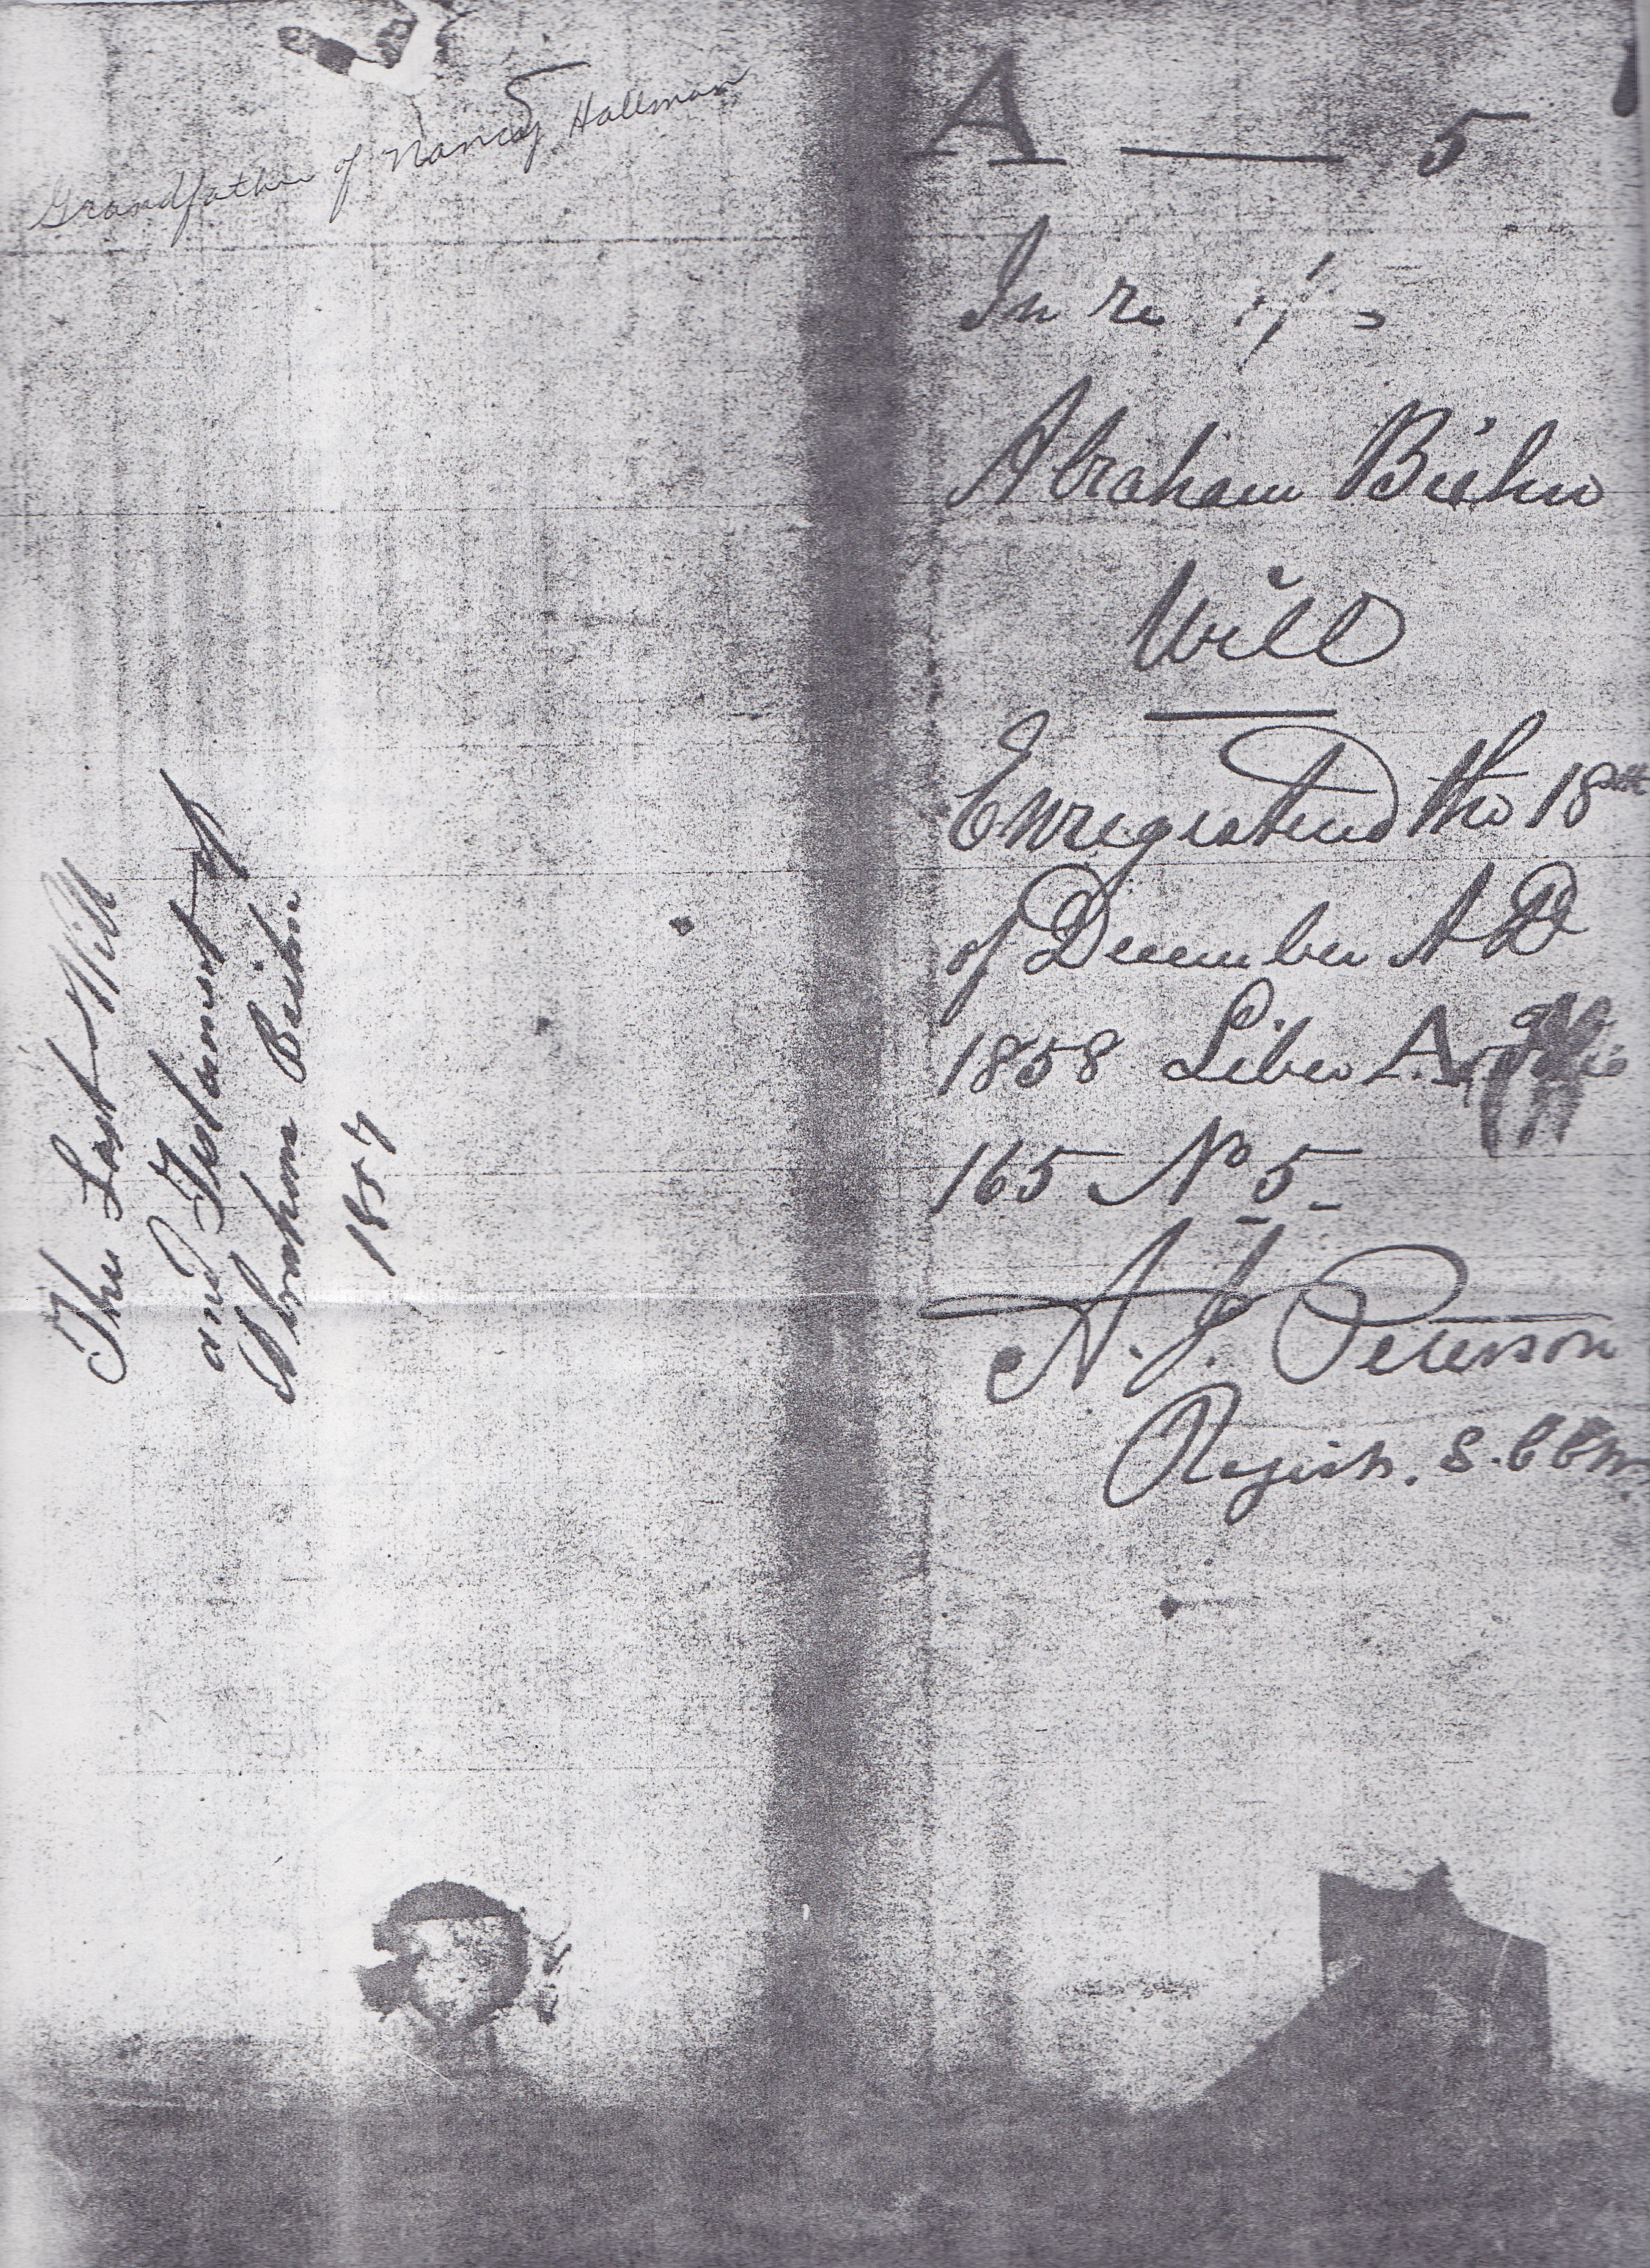 Grandfather of Nancy Hallman
5
The Last Will
and Testament of
Abraham Beihn
1857
A — 5
In re
Abraham Biehn
Will
Enregistered the 18th
of December A D
1858 Liber A
165 No 5
A. J. Peterson
Registr. S. C C